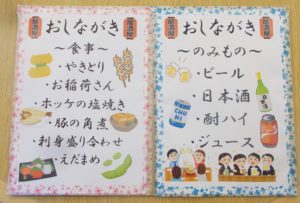 居酒屋
おしながき
～食事～
・やきとり
・お稲荷さん
・ホッケの塩焼き
・豚の角煮
・刺身盛り合わせ
・えだまめ
居酒屋
おしながき
～のみもの～
・ビール
・日本酒
・酎ハイ
・ジュース
CHU-HI